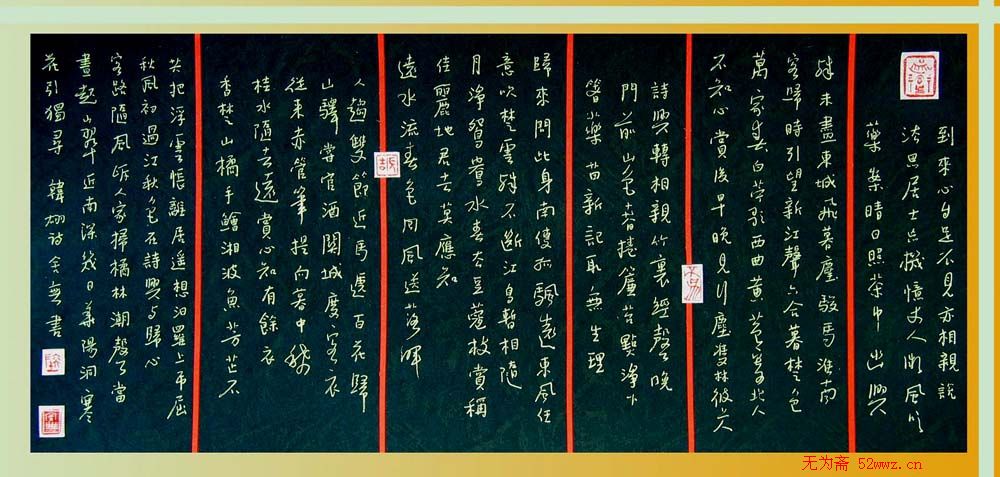 到來心自足不見亦相親說
法思居士忘機憶丈人微風吹
藥案晴日照茶巾出興
殊未盡東城飛暮塵駿馬淮南
客歸時引望新江聲六合暮楚色
萬家春白苧歌西曲黃苞寄北人
不知心賞後早晚見行塵雙林彼上人
詩興轉相親竹裏經聲晚
門前山色春捲簾苔點淨下
箸藥苗新記取無生理
歸來問此身南使孤帆遠東風任
意吹楚雲殊不斷江鳥暫相隨
月淨鴛鴦水春生豆蔻枝賞稱
佳麗地君去莫應知
遠水流春色回風送落暉
人趨雙節近馬遞百花歸
山驛嘗官酒關城度客衣
從來赤管筆提向暮中稀
桂水隨去遠賞心知有餘衣
香楚山橘手鱠湘波魚芳芷不
共把浮雲悵離居遙想汨羅上弔屈
秋風初過江秋色在詩興與歸心
客路隨風岸人家掃橘林潮聲當
晝起山翠近南深幾日華陽洞寒
花引獨尋 韓翃詩 書
无为斋 52wwz.cn